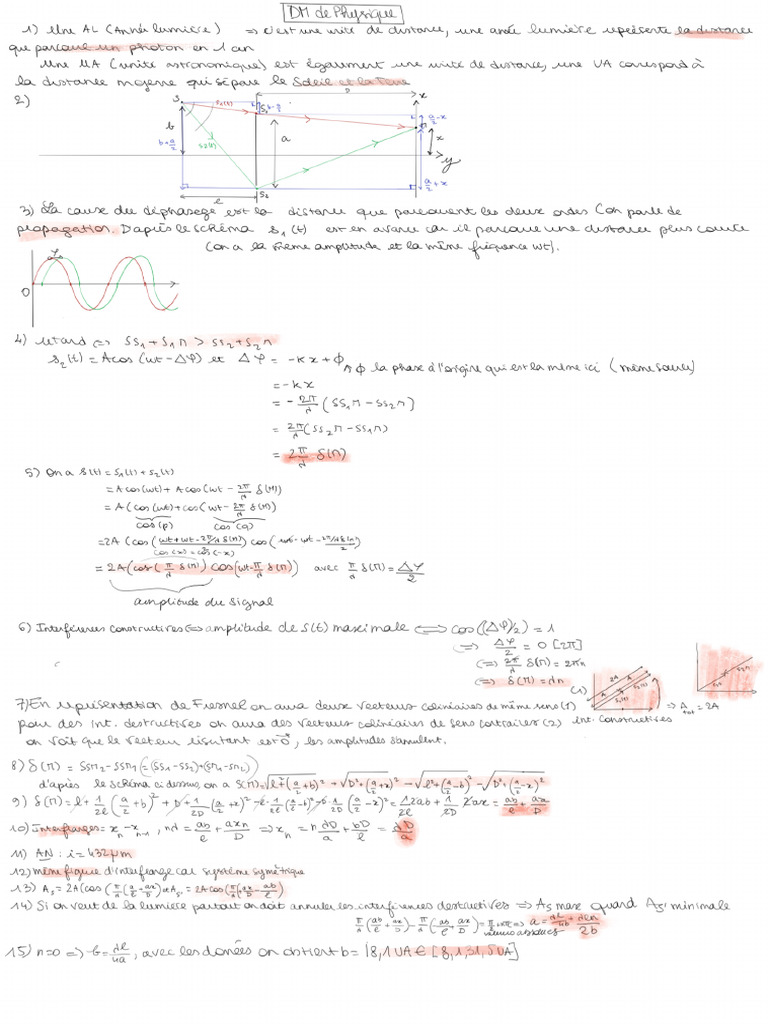 DM de Physique
1) Une AL (Année lumière) => c'est une unité de distance, une année lumière représente la distance
que parcoure un photon en 1 an
Une UA (unité astronomique) est également une unité de distance, une UA correspond à
la distance moyenne qui sépare le Soleil et la Terre
2)
3) La cause du déphasage est la distance que parcourent les deux ondes (on parle de
propagation. D'après le schéma s₁(t) est en avance car il parcoure une distance plus courte
(on a la même amplitude et la même fréquence wt).
4) retard <=> SS₁ + S₁M > SS₂ + S₂M
s₂(t) = A cos (wt - Δφ) et Δφ = -kx + ϕ
ϕ la phase à l'origine qui est la même ici (même source)
= -kx
= - 2π/λ (SS₁M - SS₂M)
= 2π/λ (SS₂M - SS₁M)
= 2π/λ δ(M)
5) On a s(t) = s₁(t) + s₂(t)
= A cos(wt) + A cos(wt - 2π/λ δ(M))
= A (cos(wt) + cos(wt - 2π/λ δ(M))
cos(p) cos(q)
= 2A (cos(wt + wt - 2π/λ δ(M) / 2) cos(wt - wt - 2π/λ δ(M) / 2)
cos(x) = cos(-x)
= 2A (cos(π/λ δ(M)) cos(wt - π/λ δ(M)) avec π/λ δ(M) = Δφ/2
amplitude du signal
6) Interférences constructives <=> amplitude de s(t) maximale <=> cos((Δφ)/2) = 1
<=> Δφ/2 = 0 [2π]
<=> 2π/λ δ(M) = 2πn
<=> δ(M) = λn
7) En représentation de Fresnel on aura deux vecteurs colinéaires de même sens (1)
=> A tot = 2A
int. constructives
pour des int. destructives on aura des vecteurs colinéaires de sens contraires (2)
on voit que le vecteur résultant est 0, les amplitudes s'annulent.
8) δ(M) = SSM₂ - SSM₁ (= (SS₁ - SS₂) + (SM₁ - SM₂)
d'après le schéma ci dessus, on a δ(M) = √l²+(a/2+b)² + √D²+(a/2+x)² - √l²+(a/2-b)² - √D²+(a/2-x)²
9) δ(M) = l + 1/2l (a/2+b)² + D + 1/2D (a/2+x)² - l - 1/2l (a/2-b)² - D - 1/2D (a/2-x)² = 1/2l 2ab + 1/2D 2ax = ab/l + ax/D
10) Interfranges = xₙ - xₙ₋₁, nλ = ab/l + axₙ/D => xₙ = n λD/a + bD/l = λD/a
11) AN : i = 432 μm
12) même figure d'interfrange car système symétrique
13) As = 2A (cos(π/λ (ab/l + ax/D) et As' = 2A cos(π/λ (ax/D - ab/l)
14) Si on veut de la lumière partout on doit annuler les interférences destructives => As max quand As' minimale
π/λ (ab/l + ax/D) - π/λ (ab/l + ax/D) = π/2 + nπ => a = λl/4b + λln/2b
valeurs absolues
15) n=0 => b = λl/4a, avec les données on obtient b = 18,1 UA ∈ [8,1; 31,5 UA]